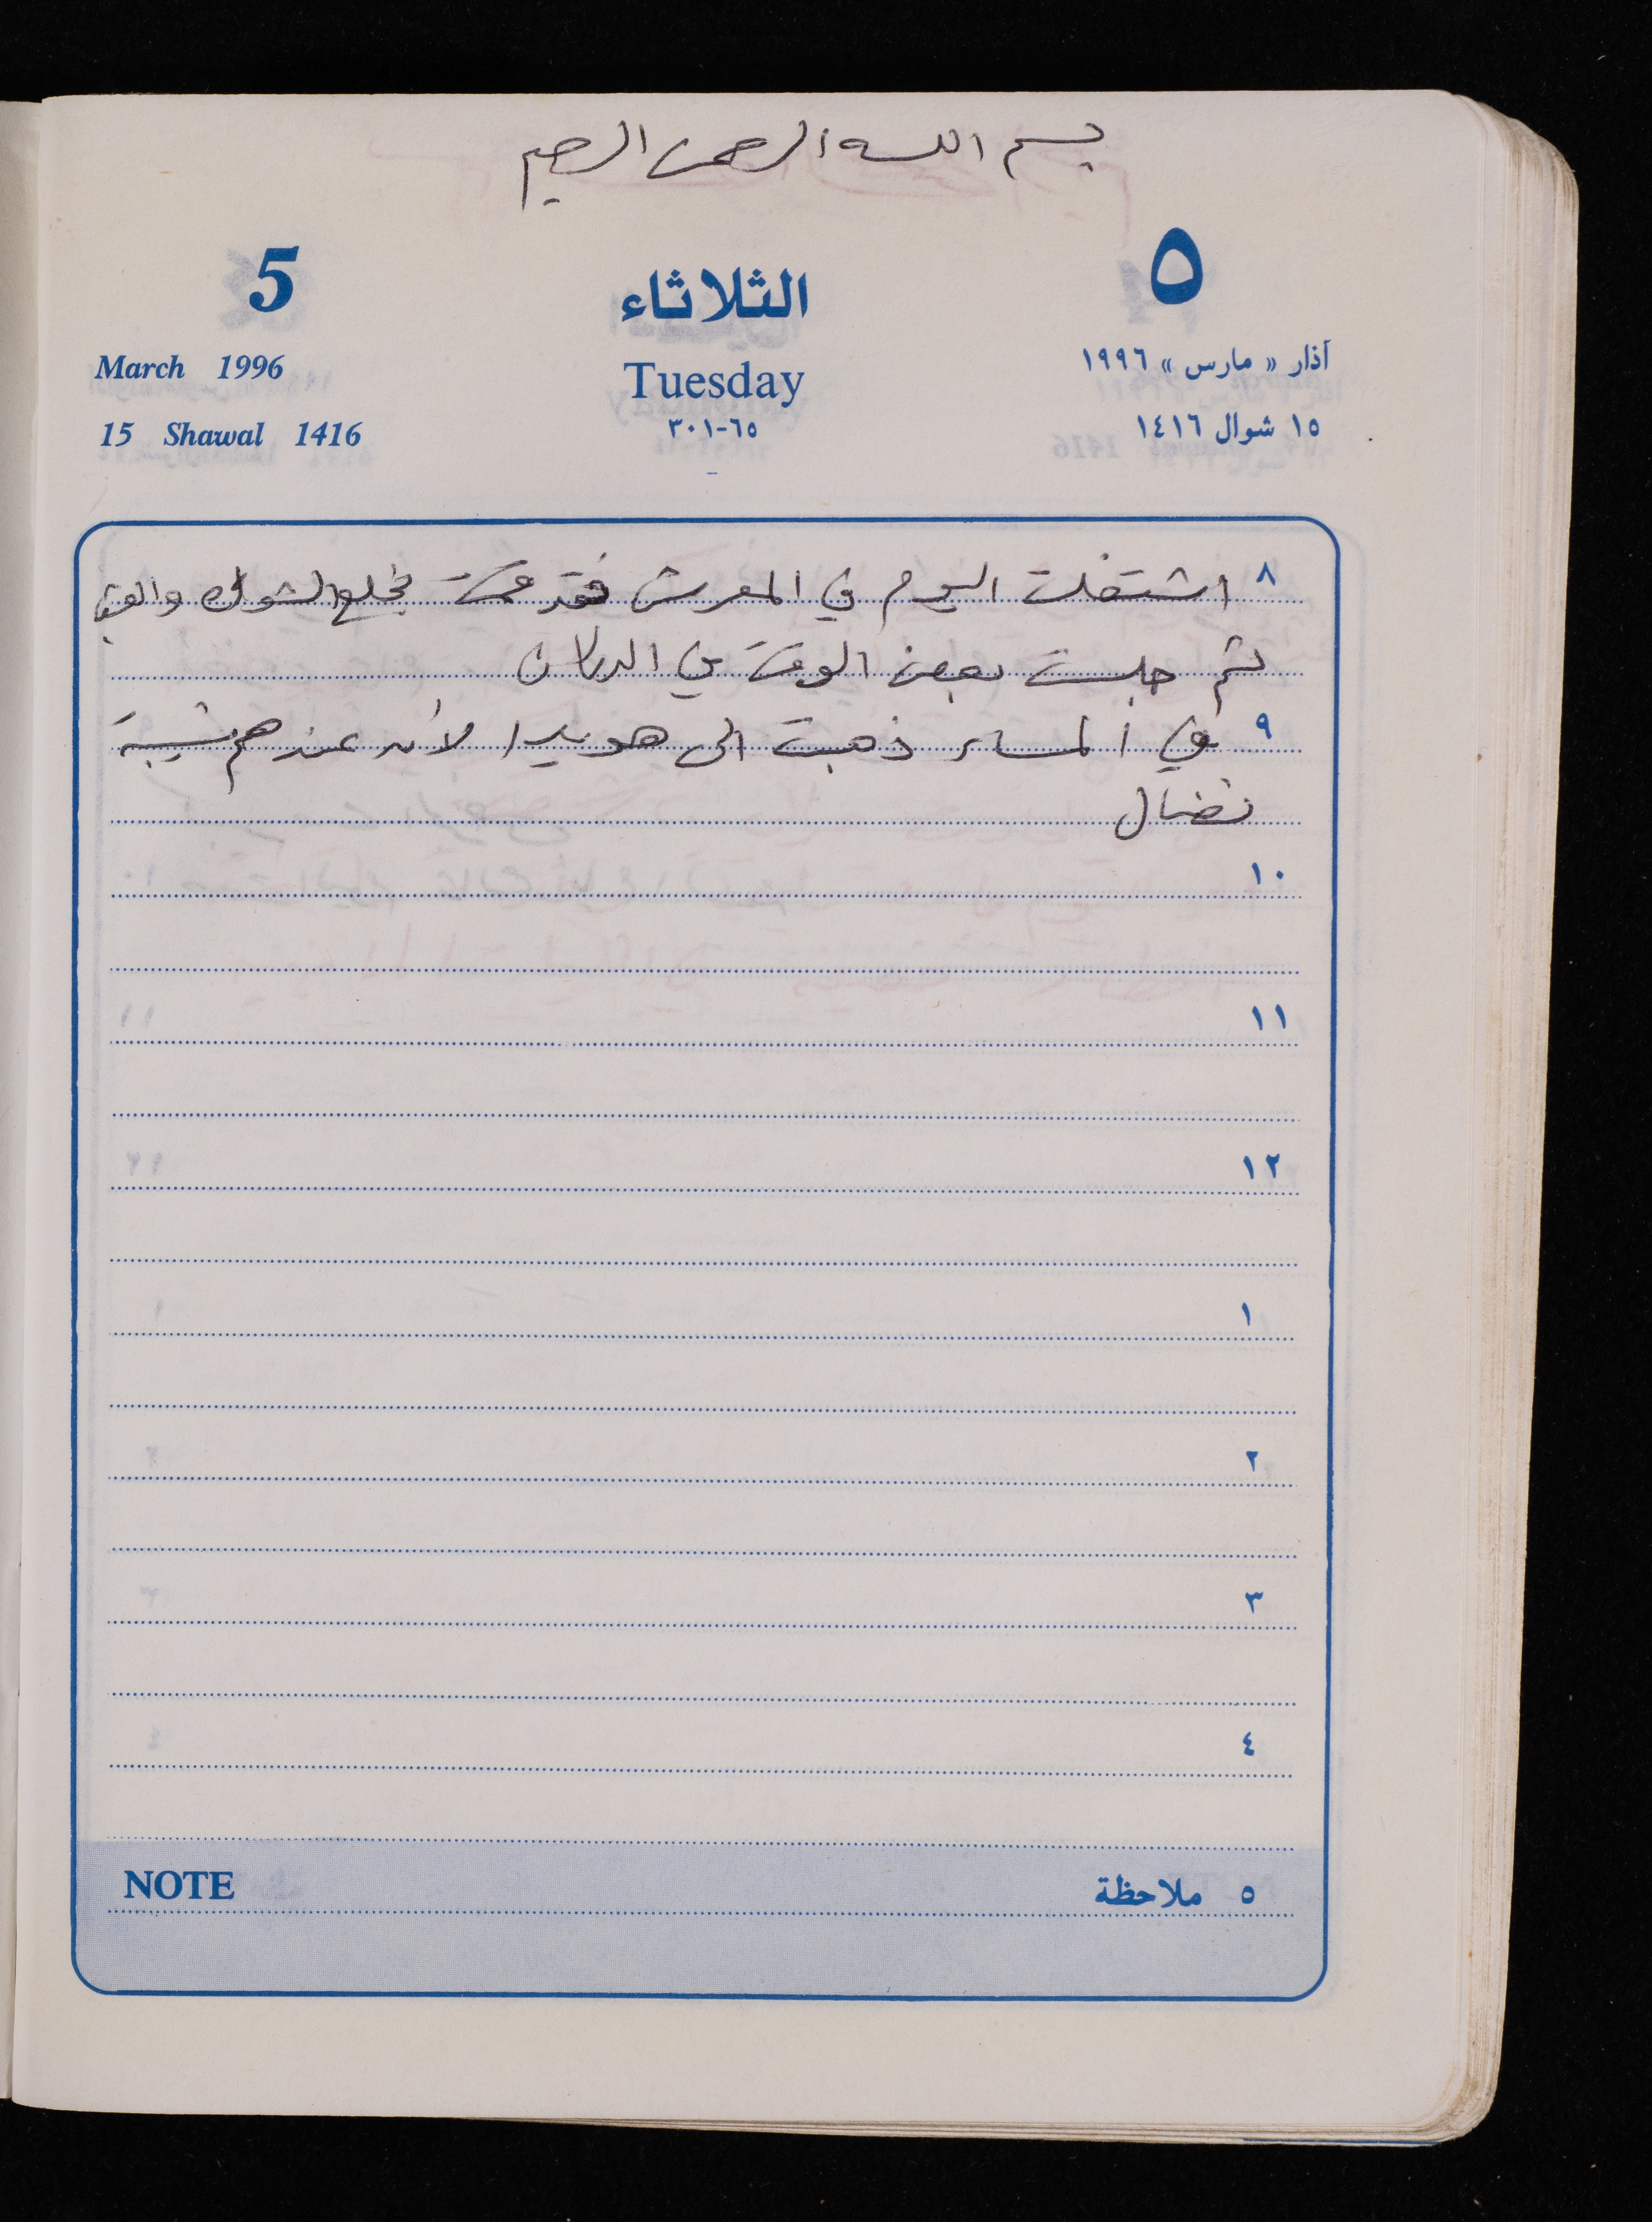 بسم الله الرحمن الرحيم
5 الثلاثاء ٥
March 1996 Tuesday آذار « مارس » ١٩٩٦
15 Shawal 1416 ٦٥-٣٠١ ١٥ شوال ١٤١٦
٨ اشتغلت اليوم في المعرش فقد قمت بخلع الشوك
ثم جلست بعض الوقت في الدكان
٩ في المساء ذهبت الى هويدا لأنه عندهم نسيبة
نضال
١٠
١١
١٢
١
٢
٣
٤
NOTE ٥ ملاحظة